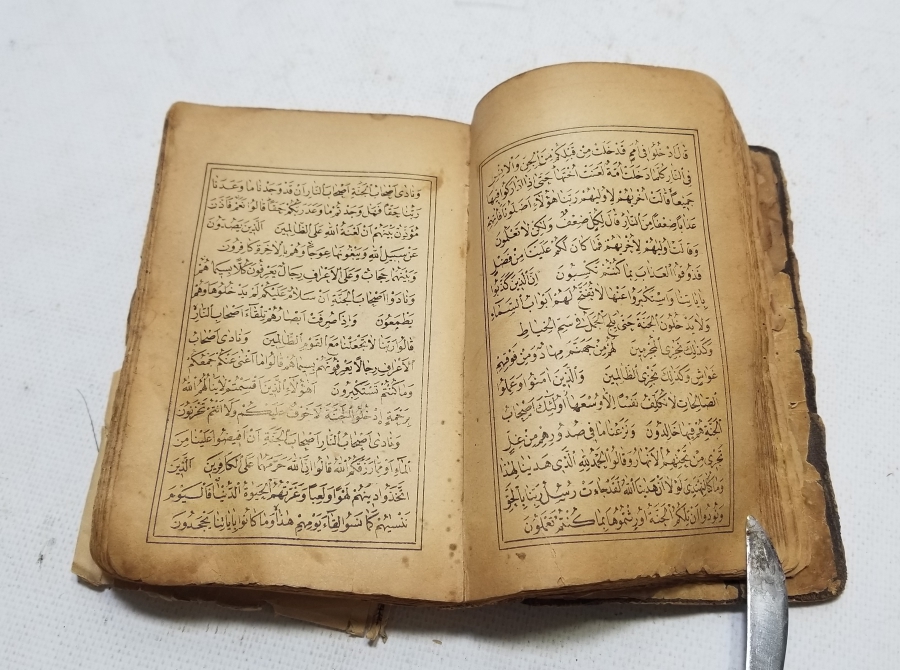 قال ادخلوا في امم قد خلت من قبلكم من الجن والانس
في النار كلما دخلت امة لعنت اختها حتى اذا اداركوا فيها
جميعا قالت اخريهم لاوليهم ربنا هؤلاء اضلونا فاتهم
عذابا ضعفا من النار قال لكل ضعف ولكن لا تعلمون
وقالت اوليهم لاخريهم فما كان لكم علينا من فضل
فذوقوا العذاب بما كنتم تكسبون ان الذين كذبوا
باياتنا واستكبروا عنها لا تفتح لهم ابواب السماء
ولا يدخلون الجنة حتى يلج الجمل في سم الخياط
وكذلك نجزي المجرمين لهم من جهنم مهاد ومن فوقهم
غواش وكذلك نجزي الظالمين والذين امنوا وعملوا
الصالحات لا نكلف نفسا الا وسعها اولئك اصحاب
الجنة هم فيها خالدون ونزعنا ما في صدورهم من غل
تجري من تحتهم الانهار وقالوا الحمد لله الذي هدينا لهذا
وما كنا لنهتدي لولا ان هدينا الله لقد جاءت رسل ربنا بالحق
ونودوا ان تلكم الجنة اورثتموها بما كنتم تعملون
ونادى اصحاب الجنة اصحاب النار ان قد وجدنا ما وعدنا
ربنا حقا فهل وجدتم ما وعد ربكم حقا قالوا نعم فاذن
مؤذن بينهم ان لعنة الله على الظالمين الذين يصدون
عن سبيل الله ويبغونها عوجا وهم بالاخرة كافرون
وبينهما حجاب وعلى الاعراف رجال يعرفون كلا بسيماهم
ونادوا اصحاب الجنة ان سلام عليكم لم يدخلوها وهم
يطمعون واذا صرفت ابصارهم تلقاء اصحاب النار
قالوا ربنا لا تجعلنا مع القوم الظالمين ونادى اصحاب
الاعراف رجالا يعرفونهم بسيماهم قالوا ما اغنى عنكم جمعكم
وما كنتم تستكبرون اهؤلاء الذين اقسمتم لا ينالهم الله
برحمة ادخلوا الجنة لا خوف عليكم ولا انتم تحزنون
ونادى اصحاب النار اصحاب الجنة ان افيضوا علينا من
الماء او مما رزقكم الله قالوا ان الله حرمهما على الكافرين الذين
اتخذوا دينهم لهوا ولعبا وغرتهم الحيوة الدنيا فاليوم
ننسيهم كما نسوا لقاء يومهم هذا وما كانوا باياتنا يجحدون